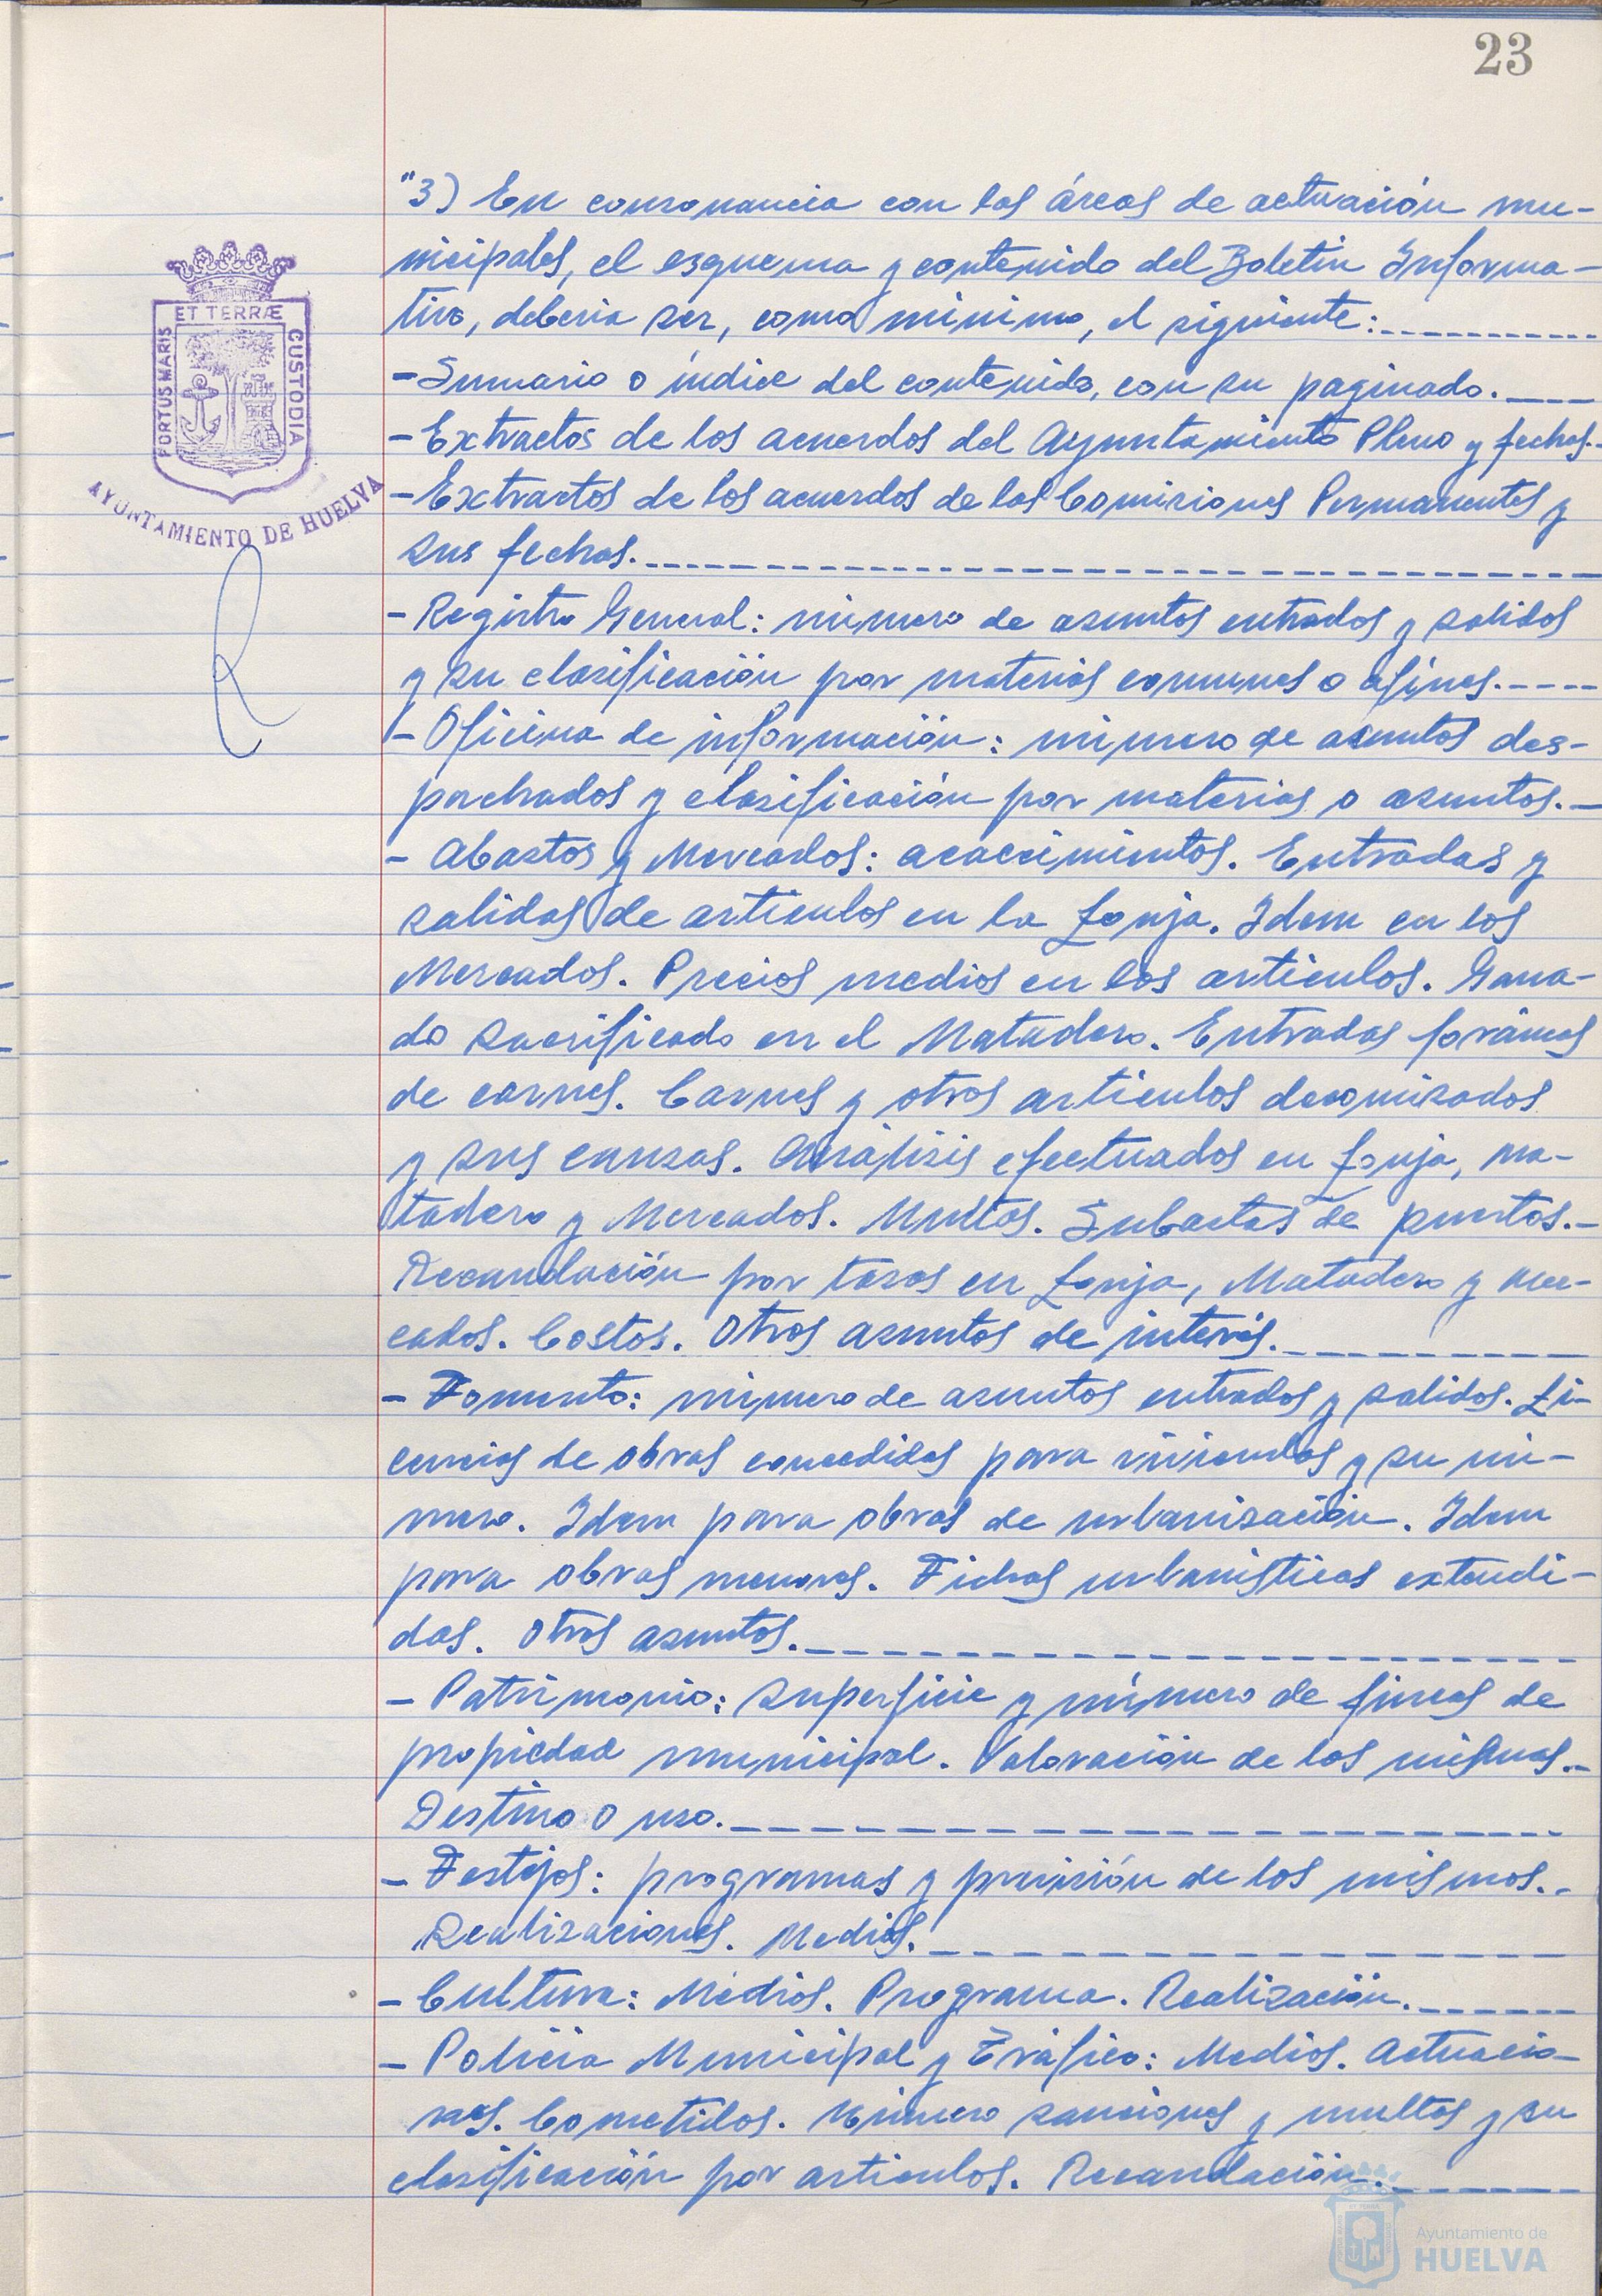 23
"3) En consonancia con las áreas de actuación mu-
nicipales, el esquema y contenido del Boletin Informa-
tivo, deberia ser, como minimo, el siguiente:
-Sumario o índice del contenido, con su paginado.
-Extractos de los acuerdos del Ayuntamiento Pleno y fechas.-
-Extractos de los acuerdos de las Comisiones Permanentes y
sus fechas.
-Registro General: número de asuntos entrados y salidos
y su clasificación por materias comunes o afines.
-Oficina de información: número de asuntos des-
pachados y clasificación por materias o asuntos.-
- Abastos y Mercados: acaecimientos. Entradas y
salidas de articulos en la Lonja. Idem en los
Mercados. Precios medios en los articulos. Gana-
do sacrificado en el Matadero. Entradas foráneas
de carnes. Carnes y otros articulos decomisados
y sus causas. Análisis efectuados en Lonja, ma-
tadero y Mercados. Multas. Subastas de puestos.-
Recaudación por tasas en Lonja, Matadero y mer-
cados. Costos. Otros asuntos de interés.
- Fomento: número de asuntos entrados y salidos. Li-
cencias de obras concedidas para viviendas y su nú-
mero. Idem para obras de urbanización. Idem
para obras menores. Fichas urbanisticas extendi-
das. Otros asuntos.
- Patrimonio: superficie y número de fincas de
propiedad municipal. Valoración de las mismas.-
Destino o uso.
- Festejos: programas y previsión de los mismos.-
Realizaciones. Medios.
- Cultura: Medios. Programa. Realización.
- Policia Municipal y Tráfico: Medios. Actuacio-
nes. Cometidos. Número sanciones y multas y su
clasificación por articulos. Recaudación.
PORTUS MARIS
ET TERRÆ
CUSTODIA
AYUNTAMIENTO DE HUELVA
Ayuntamiento de
HUELVA